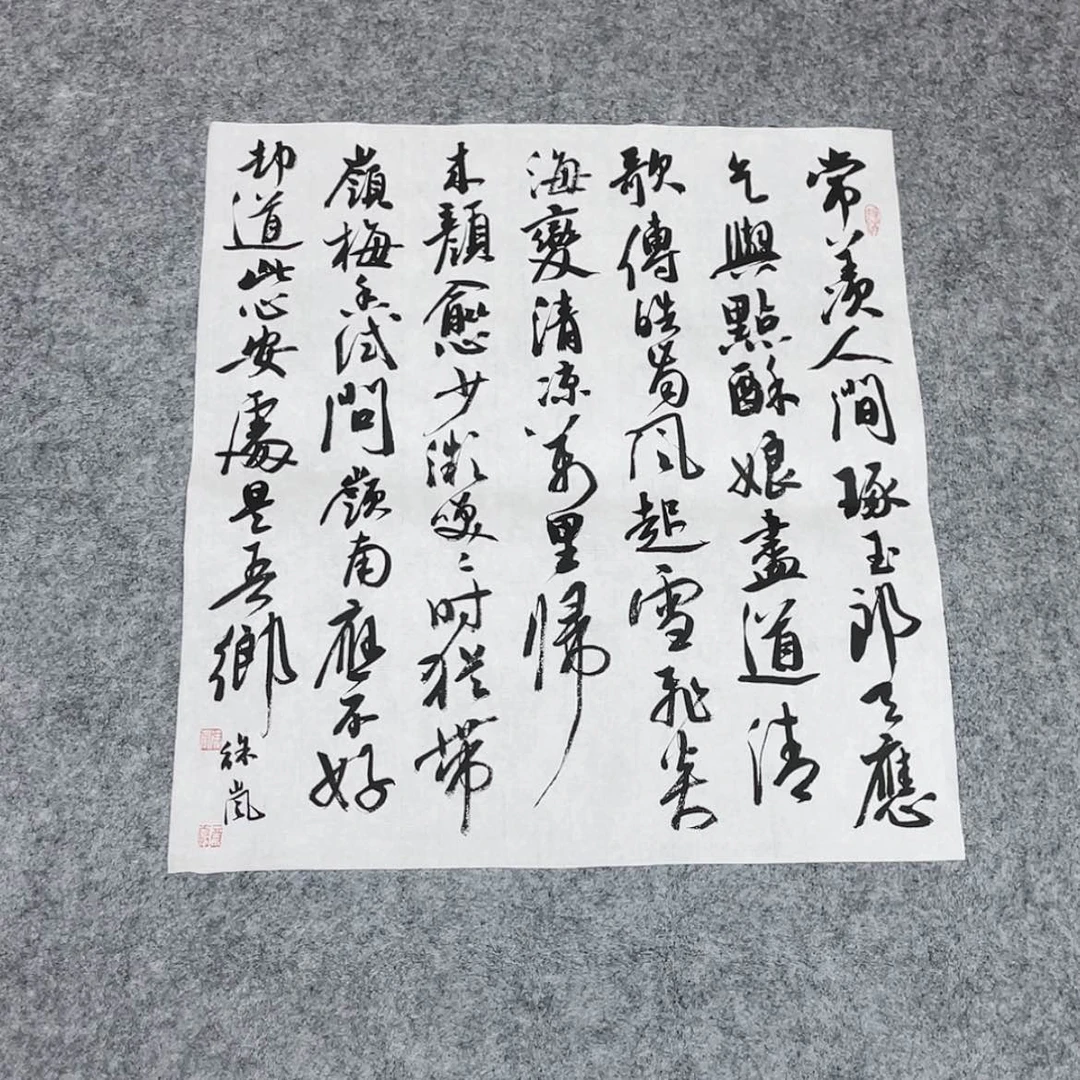 常羨人間琢玉郎天應
乞與點酥娘盡道清
歌傳皓齒風起雪飛炎
海變清凉萬里歸
来顏愈少微笑〻時猶帶
嶺梅香試問嶺南應不好
却道此心安處是吾鄉
徐嵐